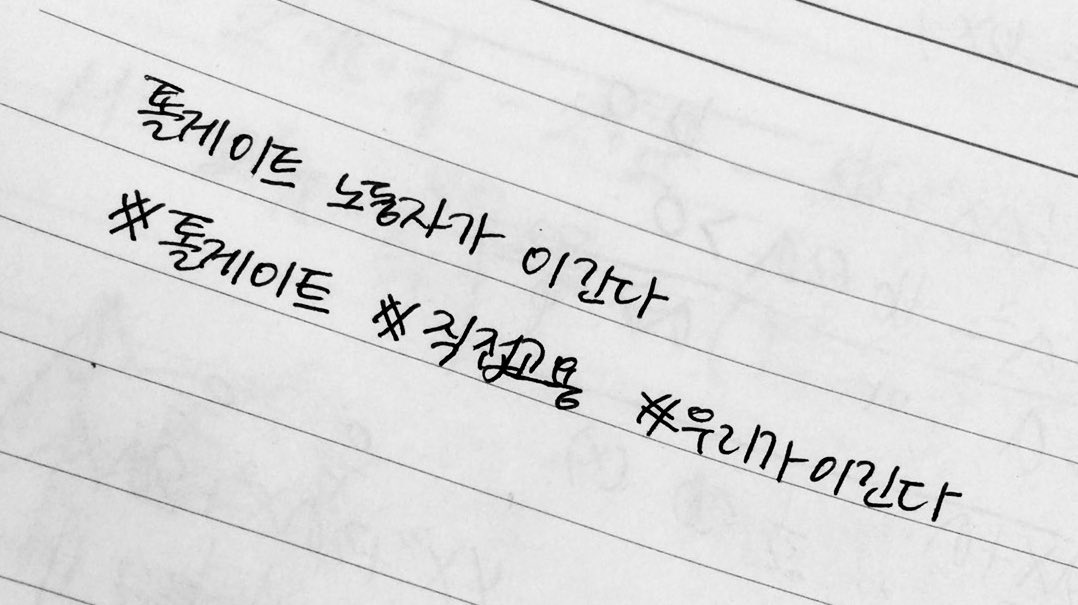 톨게이트 노동자가 이긴다
#톨게이트 #직접고용 #우리가이긴다